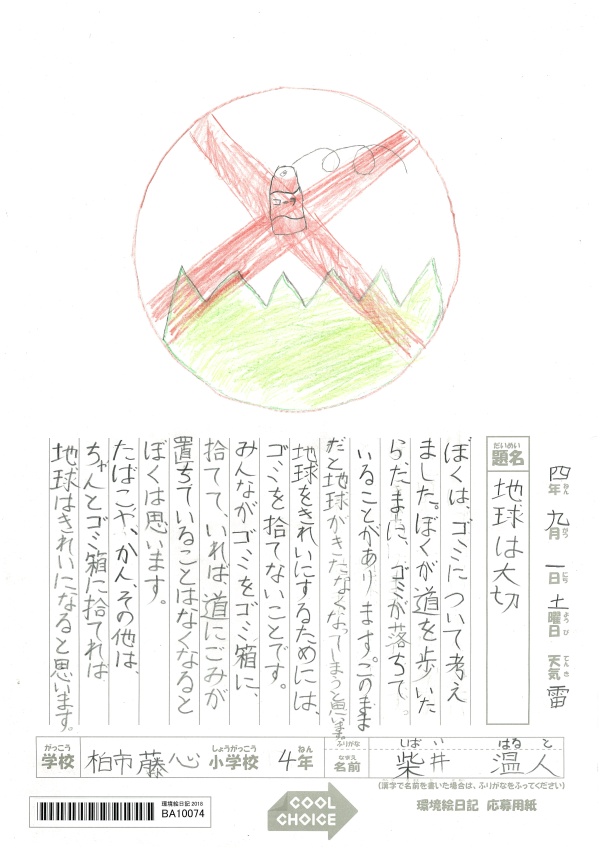 コーラ
四年 九月 一日 土曜日 天気 雷
ねん がつ にち ようび てんき
だいめい
題名
地球は大切
ぼくは、ゴミについて考え
ました。ぼくが道を歩いた
らだまに、ゴミが落ちて
いることがあります。このまま
だと地球がきたなくなってしまうと思います。
地球をきれいにするためには、
ゴミを捨てないことです。
みんながゴミをゴミ箱に、
捨てて、いれば道にごみが
置ちていることはなくなると
ぼくは思います。
たばこや、かん、その他は、
ちゃんとゴミ箱に捨てれば
地球はきれいになると思います。
がっこう しょうがっこう ねん ふりがな しば い はる と
学校 柏市藤心 小学校 4年 なまえ 名前 柴井 温人
(漢字で名前を書いた場合は、ふりがなをふってください)
環境絵日記 2018
BA10074
COOL
CHOICE
環境絵日記 応募用紙